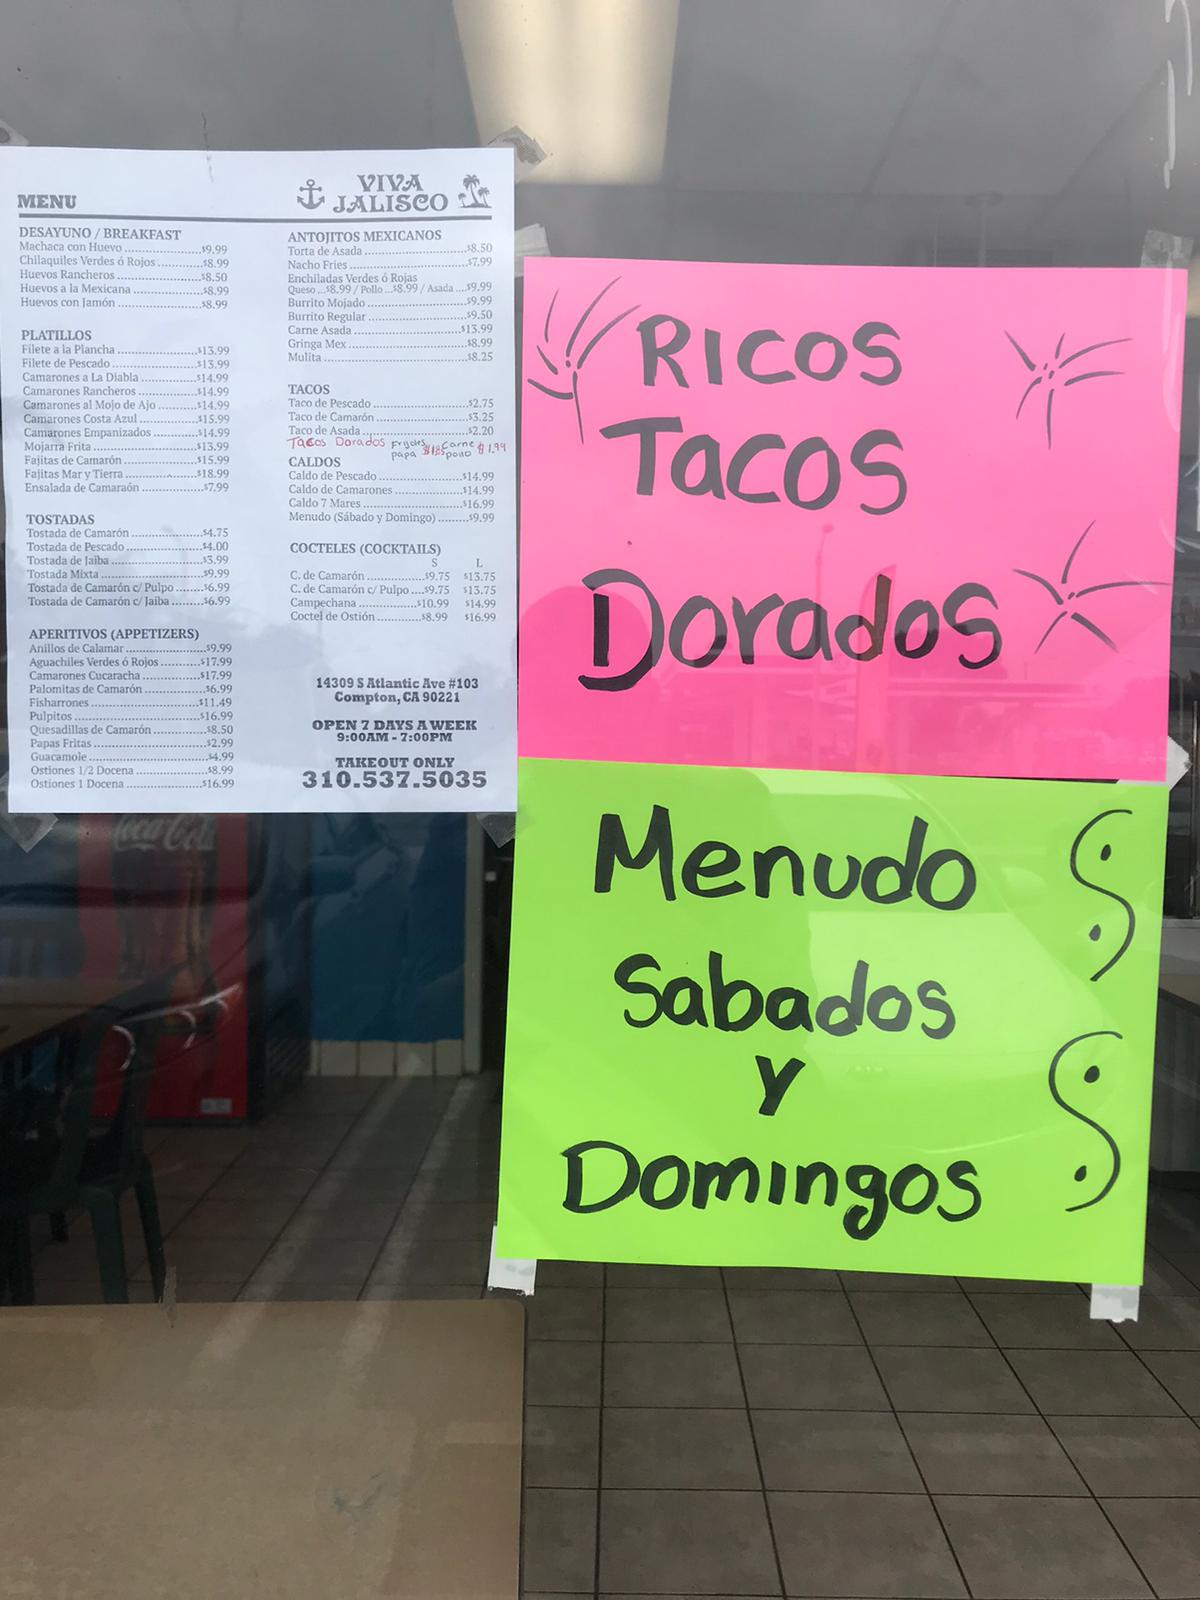 MENU
VIVA
JALISCO
DESAYUNO / BREAKFAST
Machaca con Huevo ..................$9.99
Chilaquiles Verdes ó Rojos ..........$8.99
Huevos Rancheros ....................$8.50
Huevos a la Mexicana ................$8.99
Huevos con Jamón ...................$8.99
PLATILLOS
Filete a la Plancha ...................$13.99
Filete de Pescado .....................$13.99
Camarones a La Diabla .............$14.99
Camarones Rancheros ..............$14.99
Camarones al Mojo de Ajo .........$14.99
Camarones Costa Azul .............$15.99
Camarones Empanizados ..........$14.99
Mojarra Frita .........................$13.99
Fajitas de Camarón ..................$15.99
Fajitas Mar y Tierra .................$18.99
Ensalada de Camaraón .............$7.99
TOSTADAS
Tostada de Camarón .................$4.75
Tostada de Pescado ..................$4.00
Tostada de Jaiba .....................$3.99
Tostada Mixta ........................$9.99
Tostada de Camarón c/ Pulpo ......$6.99
Tostada de Camarón c/ Jaiba .......$6.99
APERITIVOS (APPETIZERS)
Anillos de Calamar ...................$9.99
Aguachiles Verdes ó Rojos ..........$17.99
Camarones Cucaracha ..............$17.99
Palomitas de Camarón ..............$6.99
Fisharrones ...........................$11.49
Pulpitos ................................$16.99
Quesadillas de Camarón ............$8.50
Papas Fritas ...........................$2.99
Guacamole ............................$4.99
Ostiones 1/2 Docena .................$8.99
Ostiones 1 Docena ...................$16.99
ANTOJITOS MEXICANOS
Torta de Asada ........................$8.50
Nacho Fries ............................$7.99
Enchiladas Verdes ó Rojas
Queso ...$8.99 / Pollo ...$8.99 / Asada ...$9.99
Burrito Mojado ........................$9.99
Burrito Regular .......................$9.50
Carne Asada ..........................$13.99
Gringa Mex ............................$8.99
Mulita ..................................$8.25
TACOS
Taco de Pescado ......................$2.75
Taco de Camarón .....................$3.25
Taco de Asada .........................$2.20
Tacos Dorados frijoles papa $1.85 carne pollo $1.99
CALDOS
Caldo de Pescado .....................$14.99
Caldo de Camarones .................$14.99
Caldo 7 Mares .........................$16.99
Menudo (Sábado y Domingo) ........$9.99
COCTELES (COCKTAILS)
S L
C. de Camarón ..............$9.75 $13.75
C. de Camarón c/ Pulpo ....$9.75 $13.75
Campechana ...............$10.99 $14.99
Coctel de Ostión .............$8.99 $16.99
14309 S Atlantic Ave #103
Compton, CA 90221
OPEN 7 DAYS A WEEK
9:00AM - 7:00PM
TAKEOUT ONLY
310.537.5035
RICOS
TACOS
DORADOS
Menudo
Sabados
Y
Domingos
Coca-Cola